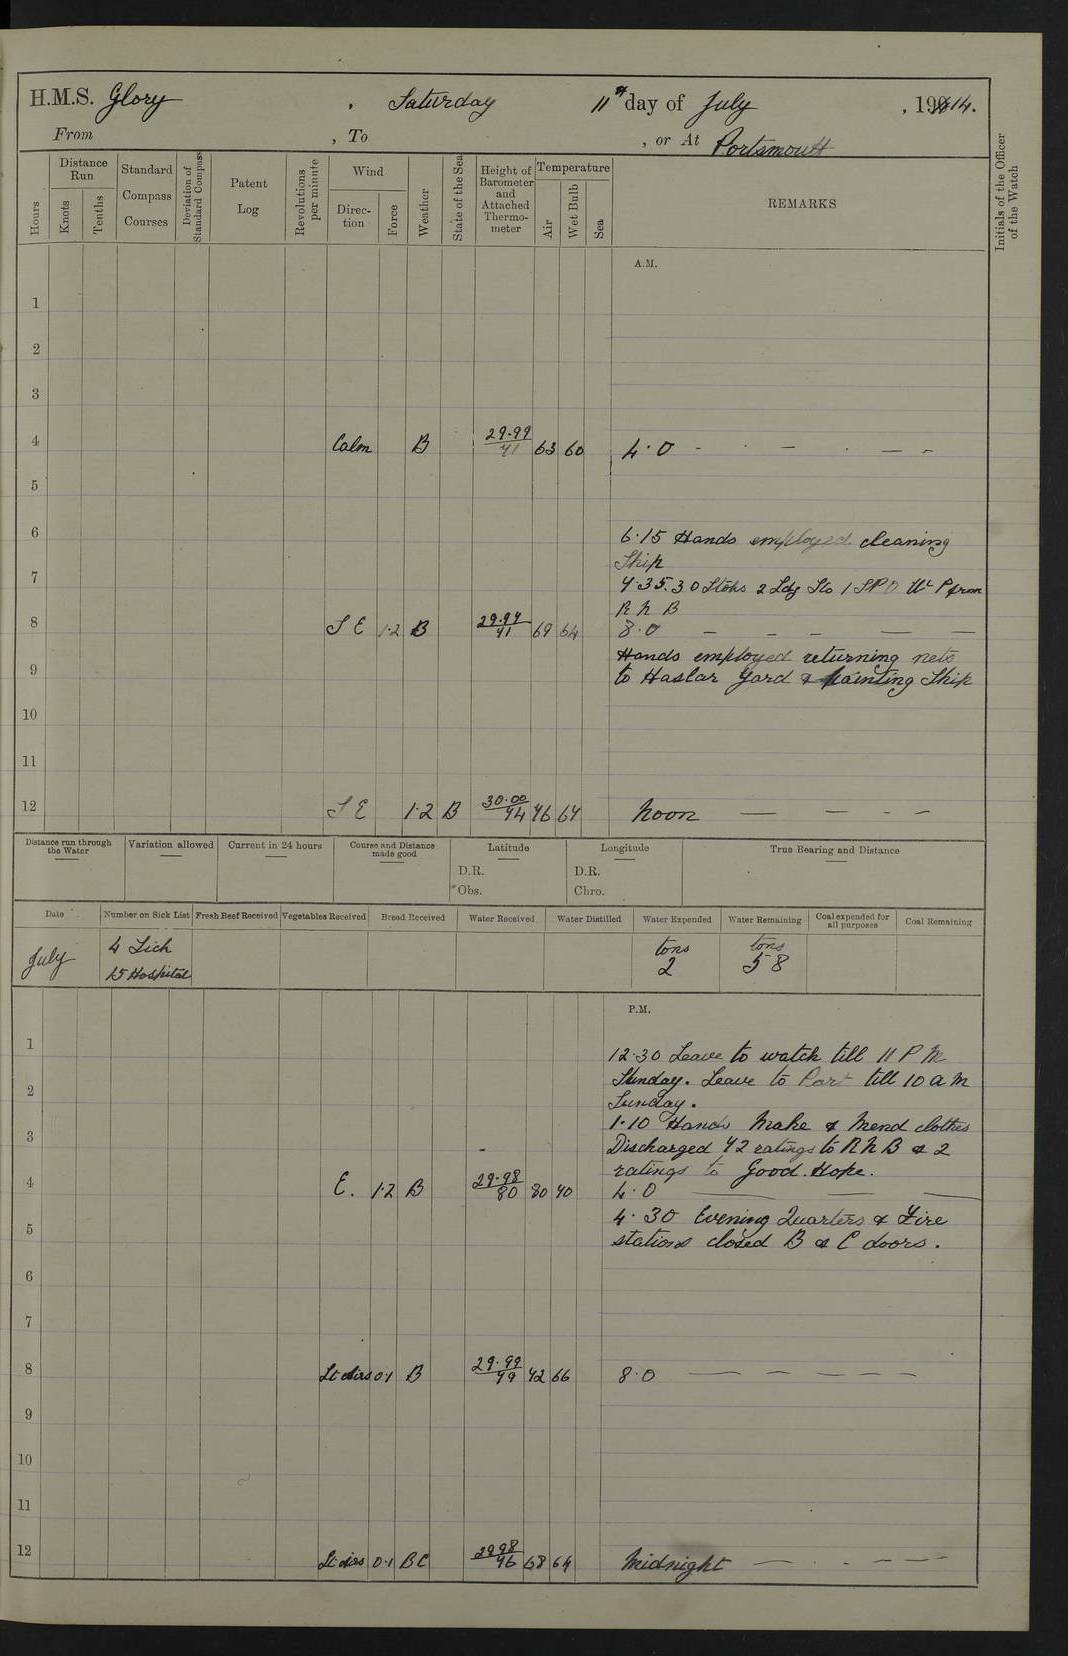 H.M.S. Glory , Saturday 11th day of July , 1914.
From , To , or At Portsmouth
Hours
Distance Run
Knots
Tenths
Standard Compass Courses
Deviation of Standard Compass
Patent Log
Revolutions per minute
Wind
Direc-tion
Force
Weather
State of the Sea
Height of Barometer and Attached Thermo-meter
Temperature
Air
Wet Bulb
Sea
REMARKS
Initials of the Officer of the Watch
A.M.
1
2
3
4 Calm B 29.99 71 63 60 4.0 - - -
5
6
6.15 Hands employed cleaning
Ship
7
7.35. 30 Stoks 2 Ldg Sto 1 SPO from
R N B
8 S E 1.2 B 29.97 71 69 64 8.0 - - - - -
Hands employed returning nets
9
to Haslar Yard & painting Ship
10
11
12 S E 1.2 B 30.00 74 76 67 Noon - - - -
Distance run through the Water
Variation allowed
Current in 24 hours
Course and Distance made good
Latitude
D.R.
Obs.
Longitude
D.R.
Chro.
True Bearing and Distance
Date
Number on Sick List
Fresh Beef Received
Vegetables Received
Bread Received
Water Received
Water Distilled
Water Expended
Water Remaining
Coal expended for all purposes
Coal Remaining
July
4 Sick
15 Hospital
tons
2
tons
58
P.M.
1
12.30 Leave to watch till 11 P M
2
Sunday. Leave to Part till 10 a m
Sunday.
1.10 Hands Make & Mend clothes
3
Discharged 72 ratings to R N B & 2
ratings to Good Hope.
4 E. 1.2 B 29.98 80 80 70 4.0 - - -
4.30 Evening Quarters & Fire
5
stations closed B & C doors.
6
7
8 Lt airs 0.1 B 29.99 79 72 66 8.0 - - - - -
9
10
11
12 Lt airs 0.1 B C 29 98 76 68 64 Midnight - - - - -